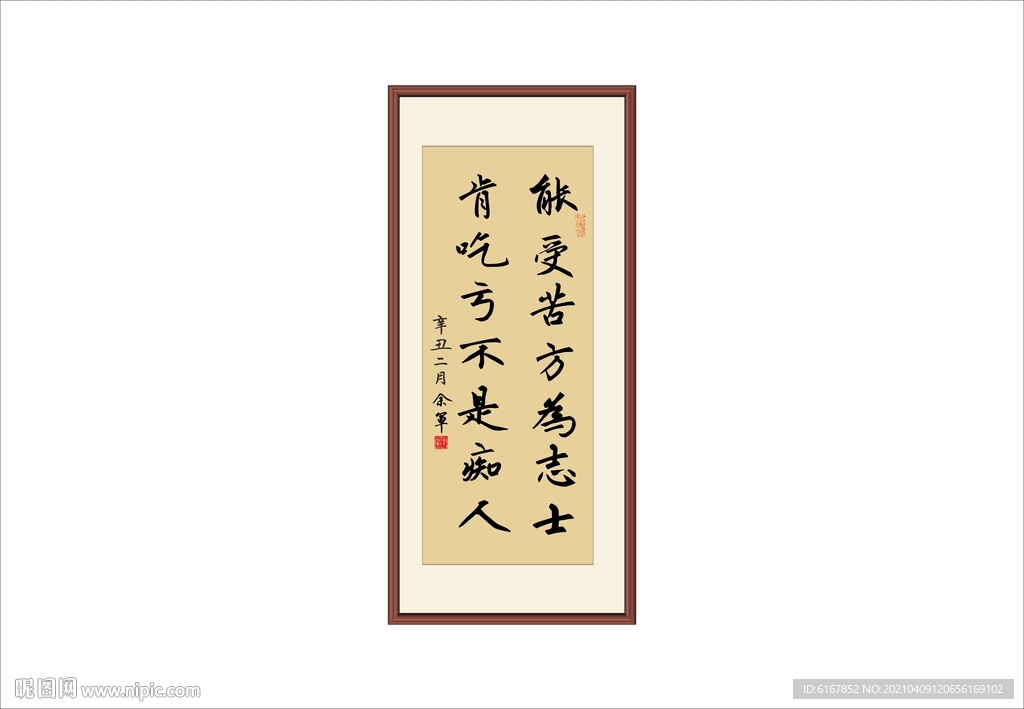 能受苦方為志士
肯吃亏不是痴人
辛丑二月余軍
昵图网 www.nipic.com
ID:6167852 NO:20210409120656169102